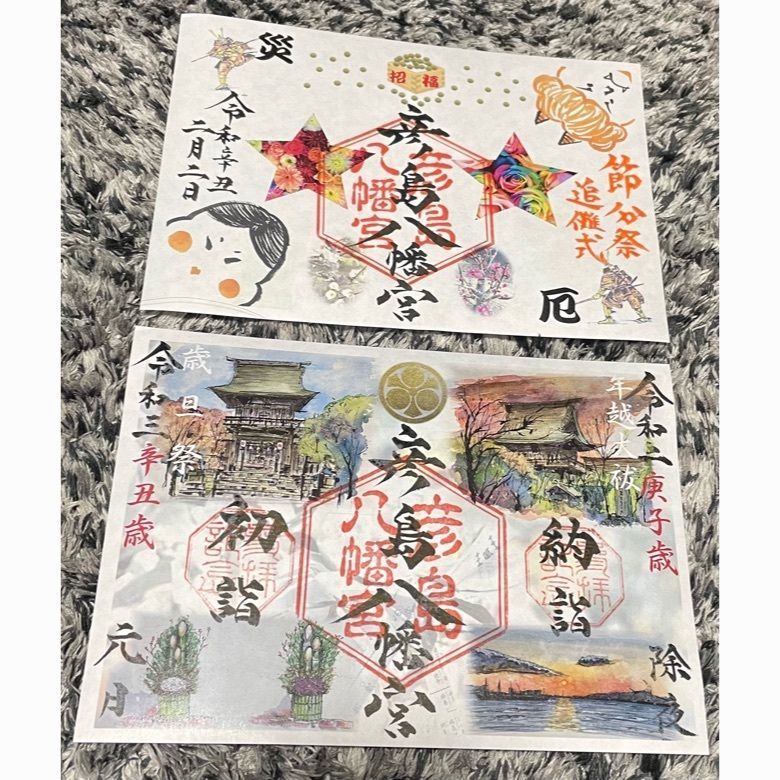 災
招福
令和辛丑
二月二日
彦島八幡宮
彦島
八幡宮
節分祭
追儺式
厄
令和二庚子歳
年越大祓
納詣
除夜
彦島八幡宮
彦島
八幡宮
歳旦祭
令和三辛丑歳
初詣
元月